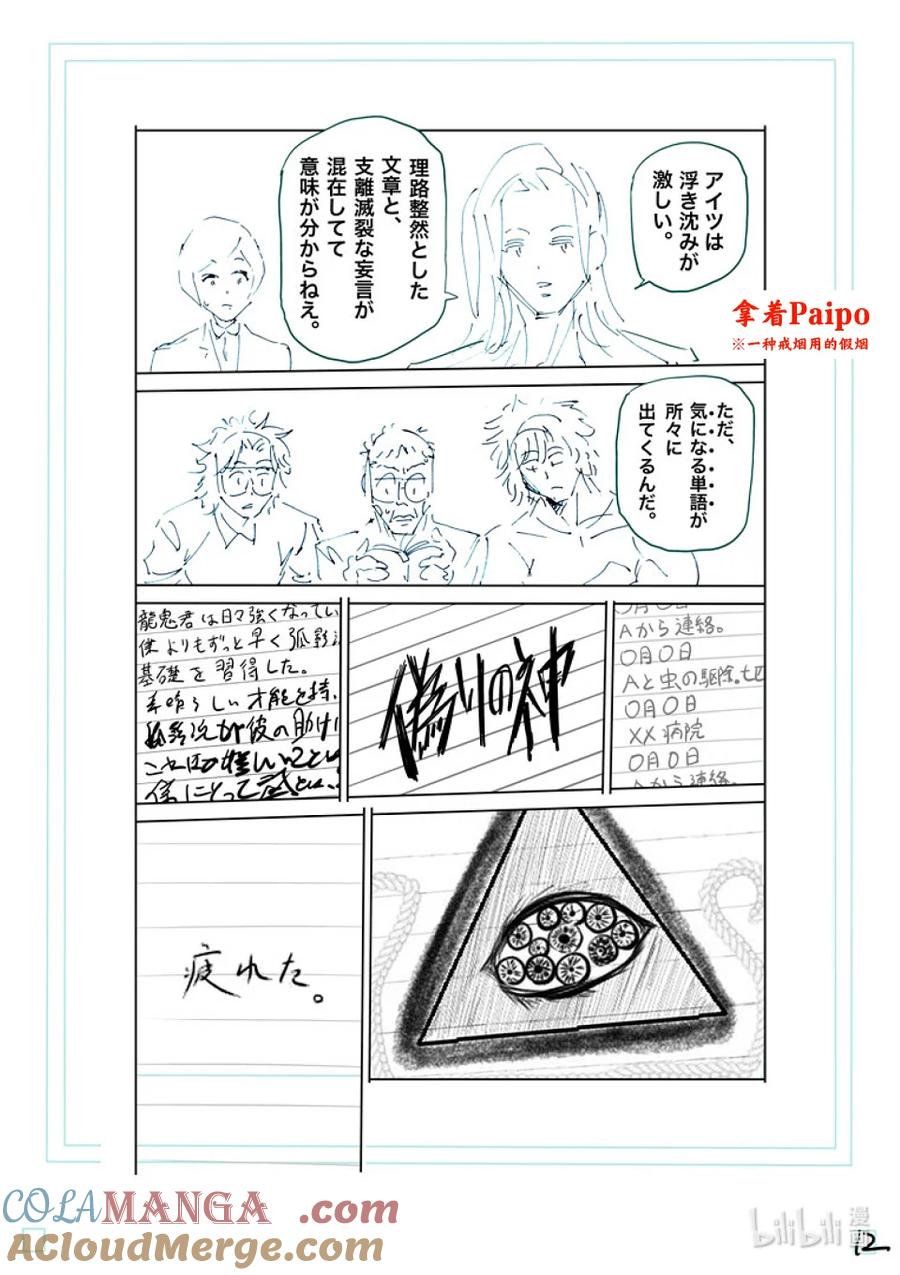 アイツは
浮き沈みが
激しい。
理路整然とした
文章と、
支離滅裂な妄言が
混在してて
意味が分からねえ。
拿着Paipo
※一种戒烟用的假烟
ただ、
気になる単語が
所々に
出てくるんだ。
〇月〇日
Aから連絡。
〇月〇日
Aと虫の駆除。
〇月〇日
××病院
〇月〇日
Aから連絡。
偽りの神
龍鬼君は日々強くなってい
僕よりもずっと早く弧影
基礎を習得した。
素晴らしい才能を持
彼の助け
僕にとって
疲れた。
COLAMANGA.com
ACloudMerge.com
bilibili 漫画
12